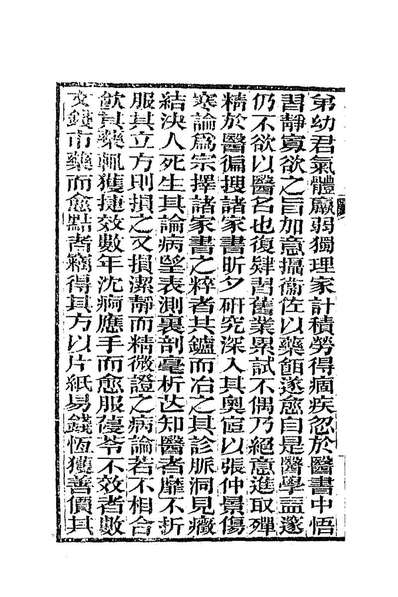 弟幼君氣體羸弱獨理家計積勞得痼疾忽於醫書中悟
習靜寡欲之旨加意攝衞佐以藥餌遂愈自是醫學益邃
仍不欲以醫名也復肄習舊業累試不偶乃絕意進取殫
精於醫徧搜諸家書昕夕研究深入其奧以張仲景傷
寒論爲宗擇諸家書之粹者其鑪而冶之其診脈洞見癥
結決人死生其論病望表測裏剖毫析芒知醫者靡不折
服其立方則損之又損潔靜而精微證之病論若不相合
飲其藥輒獲捷效數年沈痾應手而愈服蓡苓不效者數
文錢市藥而愈黠者竊得其方以片紙易錢恆獲善價其